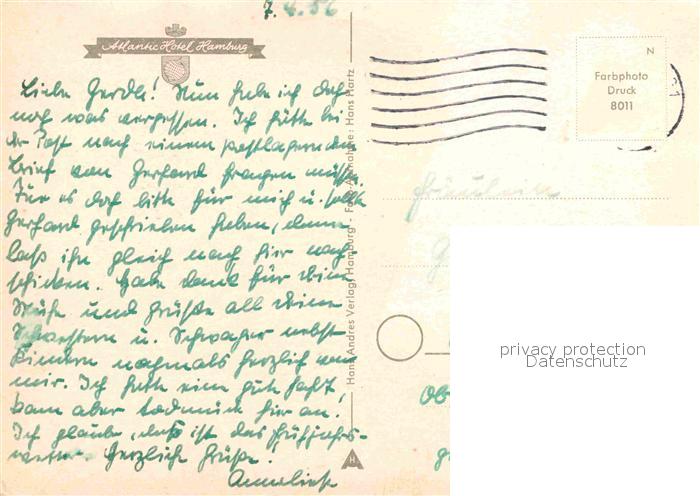 7. 4. 56
Atlantic Hotel Hamburg
Liebe Gerdl! Nun habe ich doch
noch was vergessen. Ich hätte bei
der Post nach einem postlagernden
Brief von Gerhard fragen müssen.
Tue es doch bitte für mich u. sollte
Gerhard geschrieben haben, dann
laß ihn gleich nach hier nach-
schicken. Habe dank für deine
Mühe und grüße all deine
Schwestern u. Schwager nebst
Kindern nochmals herzlich von
mir. Ich hatte eine gute Fahrt,
kam aber todmüde hier an!
Ich glaube, daß ist das Frühjahrs-
wetter. Herzliche Grüße.
Anneliese
Hans Andres Verlag, Hamburg - Foto-Aufnahme: Hans Hartz
N
Farbphoto
Druck
8011
Fräulein
privacy protection
Datenschutz
Ob
H